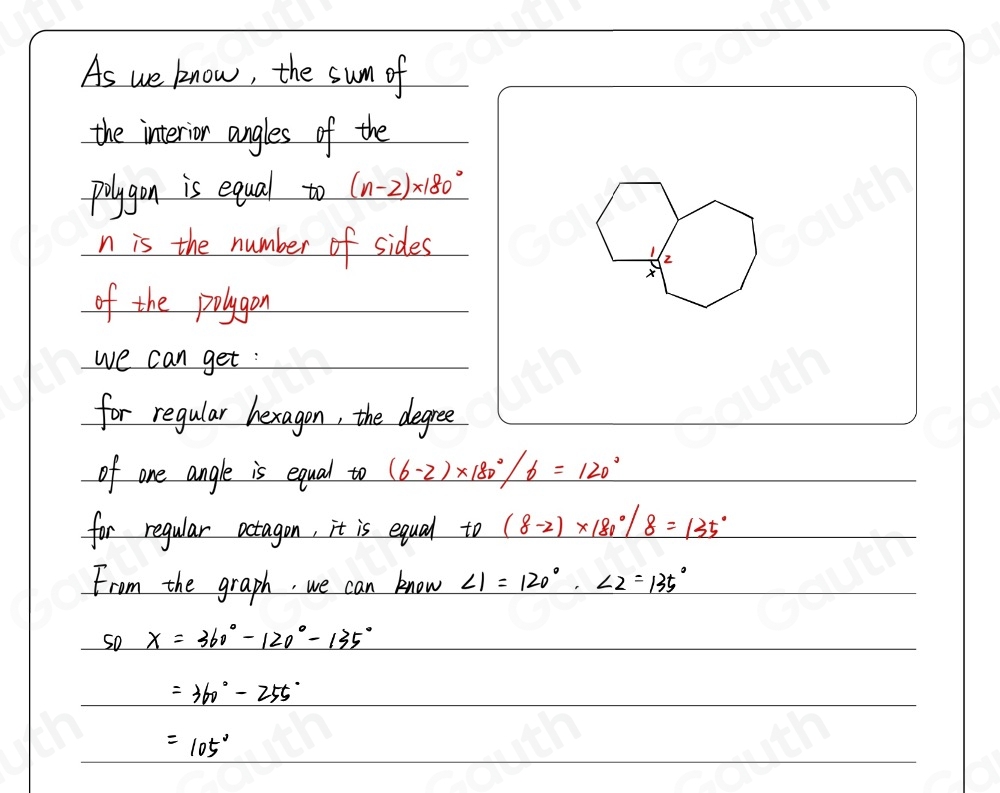 As we know, the sum of
the interior angles of the
polygon is equal to (n-2)×180°
n is the number of sides
of the polygon
we can get:
for regular hexagon, the degree
of one angle is equal to (6-2)×180°/6 = 120°
for regular octagon, it is equal to (8-2)×180°/8 = 135°
From the graph, we can know ∠1 = 120°, ∠2 = 135°
so x = 360° - 120° - 135°
= 360° - 255°
= 105°
1
2
x
Gauth